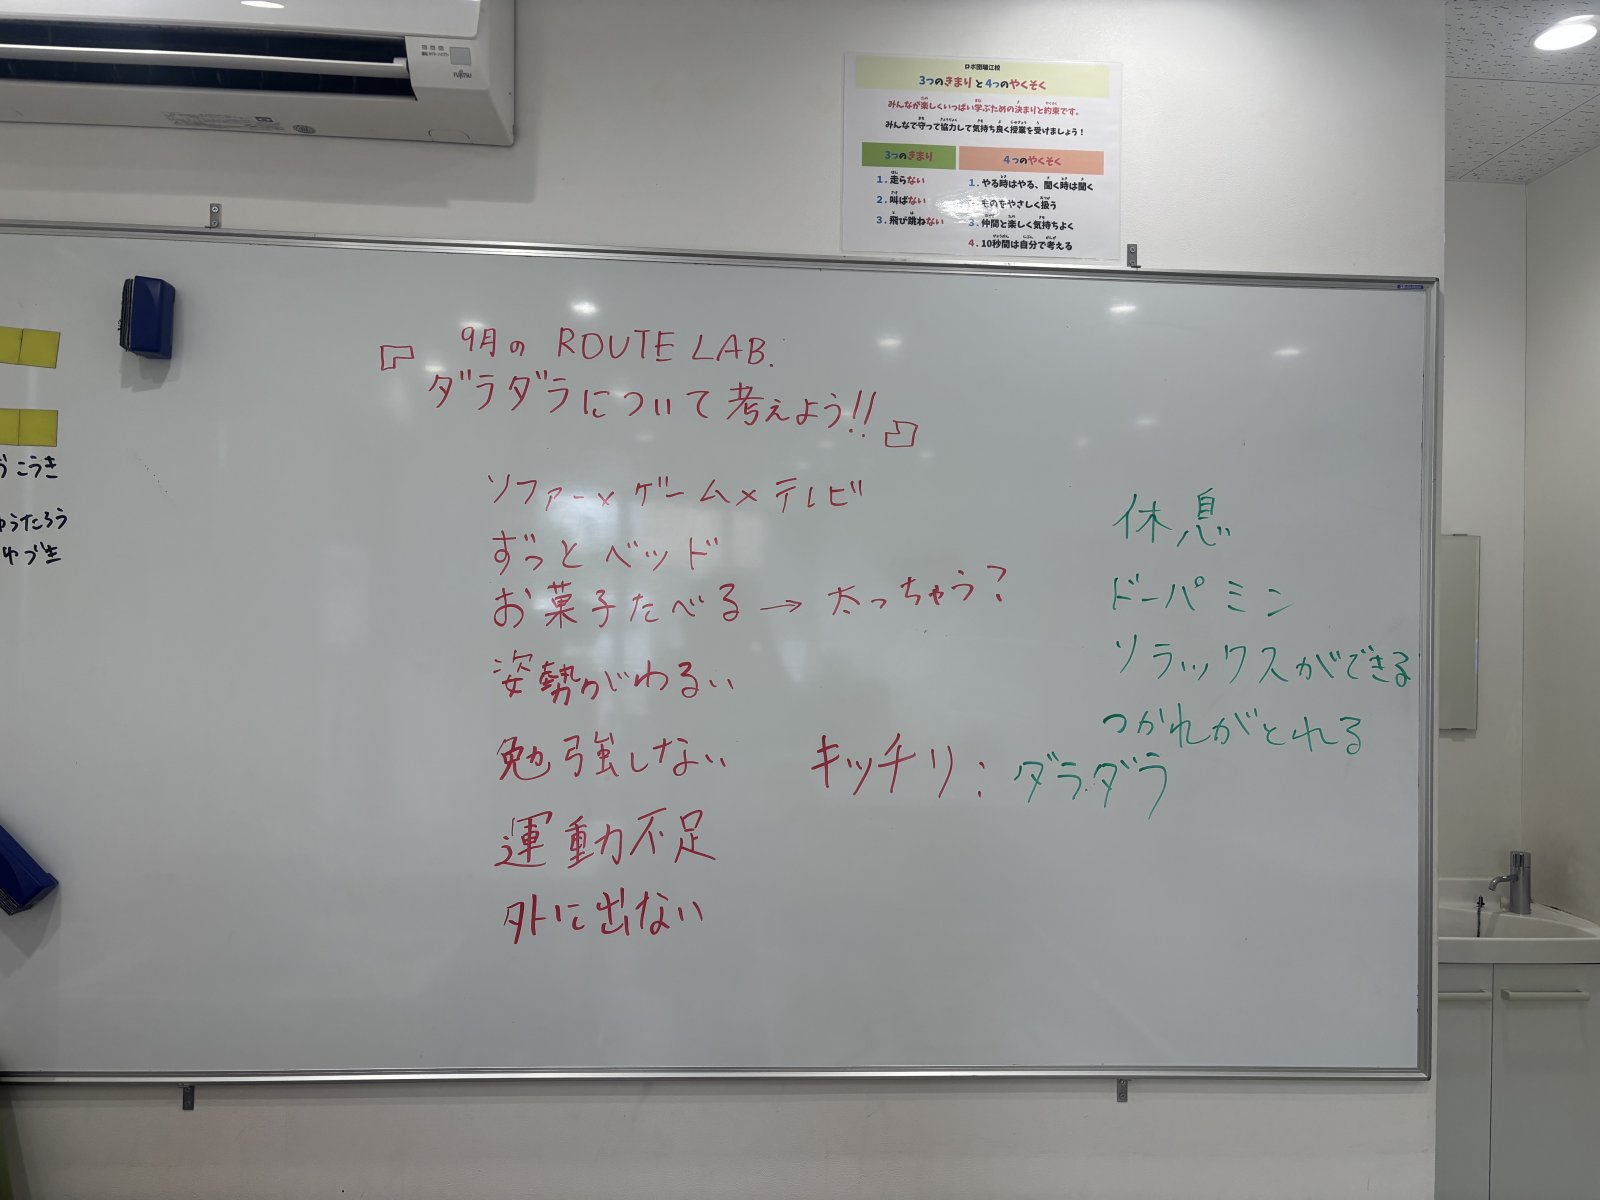 FUJITSU
ロボ団堀江校
3つのきまりと4つのやくそく
みんなが楽しくいっぱい学ぶための決まりと約束です。
みんなで守って協力して気持ち良く授業を受けましょう！
3つのきまり
1. 走らない
2. 叫ばない
3. 飛び跳ねない
4つのやくそく
1. やる時はやる、聞く時は聞く
ものをやさしく扱う
3. 仲間と楽しく気持ちよく
4. 10秒間は自分で考える
『9月の ROUTE LAB.
ダラダラについて考えよう!!』
ソファー×ゲーム×テレビ
ずっとベッド
お菓子たべる→太っちゃう?
姿勢がわるい
勉強しない
運動不足
外に出ない
キッチリ:ダラダラ
休息
ドーパミン
リラックスができる
つかれがとれる
こうき
ゆうたろう
ゆづ生